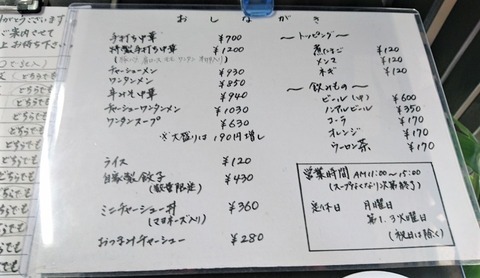 おしながき
手打ち中華 ¥700
特製手打ち中華 ¥1200
チャーシューメン ¥930
ワンタンメン ¥850
辛みそ中華 ¥940
チャーシューワンタンメン ¥1030
ワンタンスープ ¥630
※大盛りは190円増し
ライス ¥120
自家製餃子 ¥430
(数量限定)
ミニチャーシュー丼 ¥360
(マヨネーズ入り)
おつまみチャーシュー ¥280
〜トッピング〜
煮たまご ¥120
メンマ ¥120
ネギ ¥120
〜飲みもの〜
ビール(中) ¥600
ノンアルビール ¥350
コーラ ¥170
オレンジ ¥170
ウーロン茶 ¥170
営業時間 AM11:00〜15:00
(スープなくなり次第終了)
定休日 月曜日
第1.3火曜日
(祝日は除く)
がとうございます
ご案内させて
上お待ち下さい
どちらでも
どちらでも
どちらでも
どちらでも
どちらでも
どちらでも